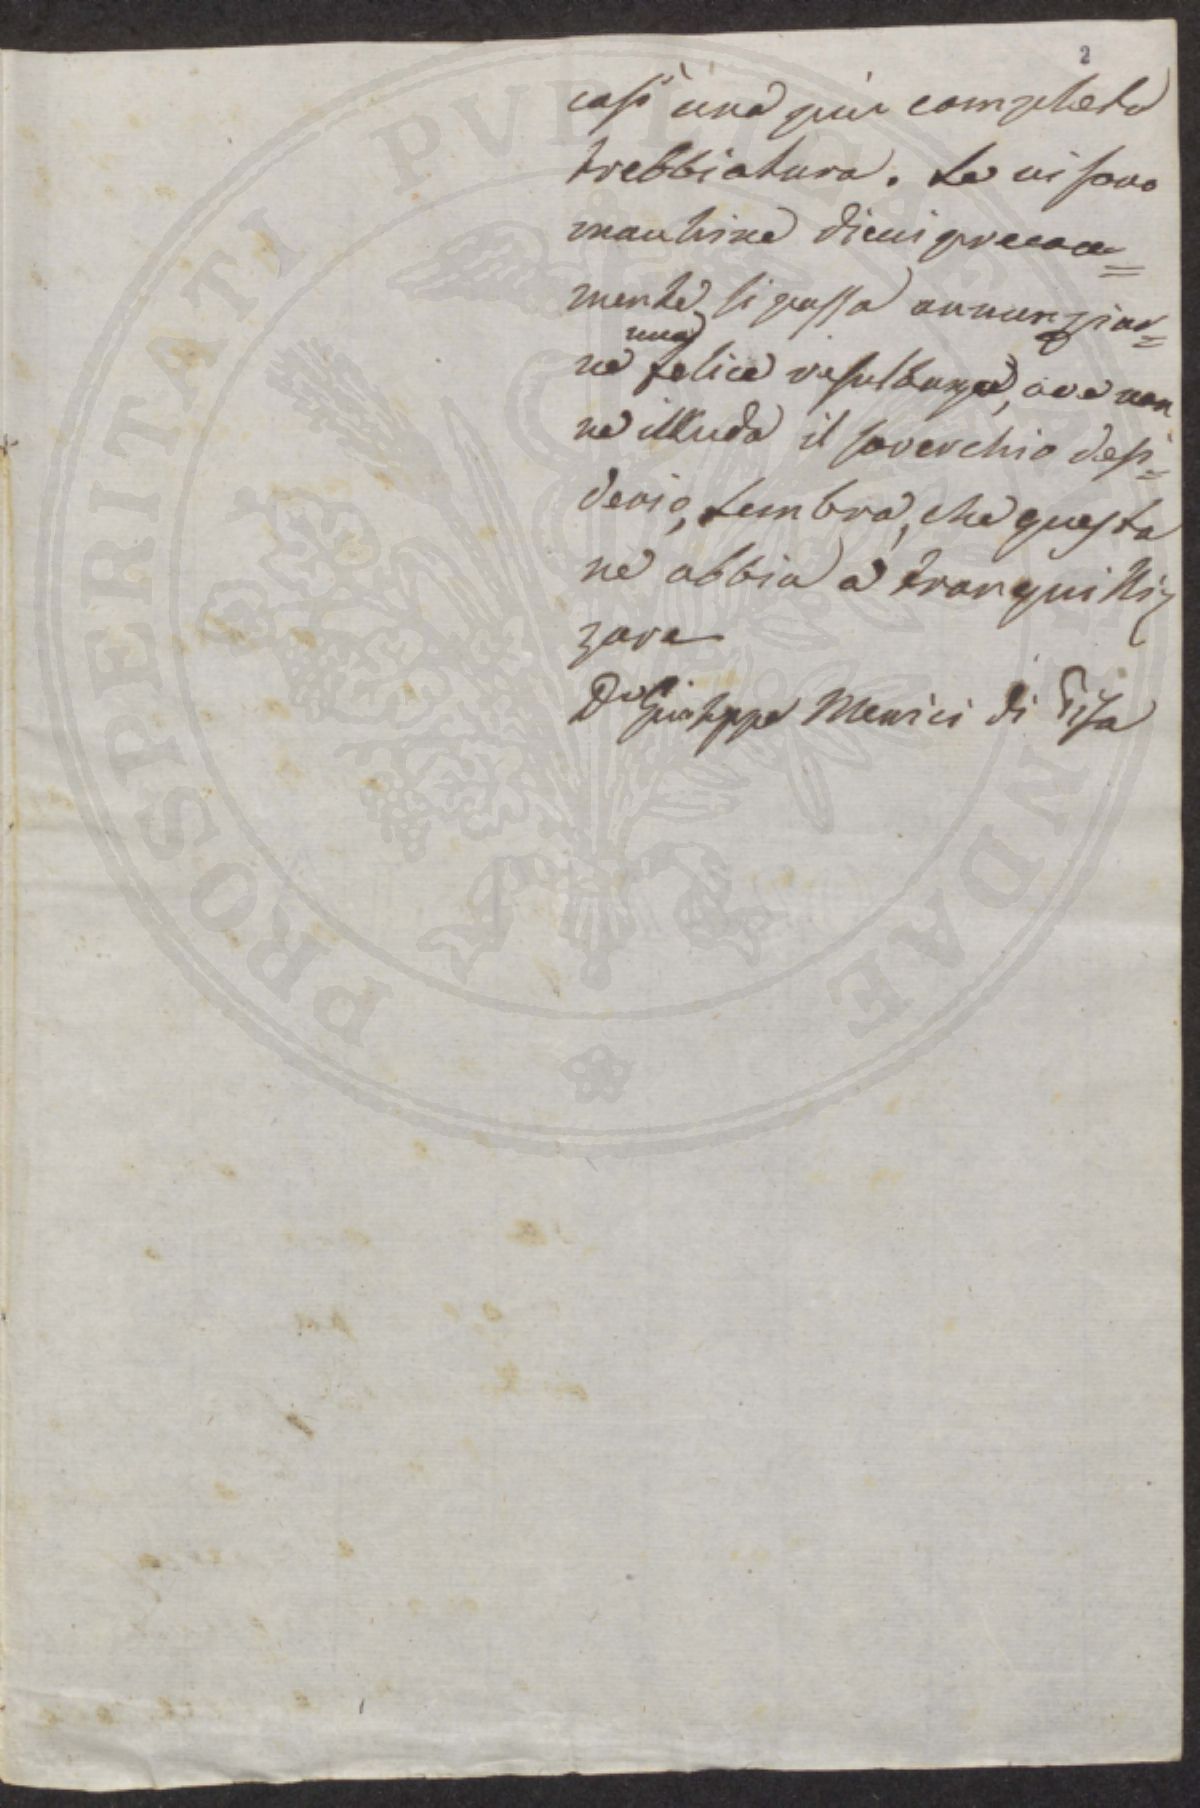 2
così una più completa
trebbiatura. Se vi sono
machine di cui precoce=
mente si possa annunziar=
una
ne felice resultanza, ove non
ne illuda il soverchio desi=
derio, sembra, che questa
ne abbia a tranquilliz
zare
Dr Giuseppe Menici di Pisa
PROSPERITATI PVBLICAE AVGENDAE